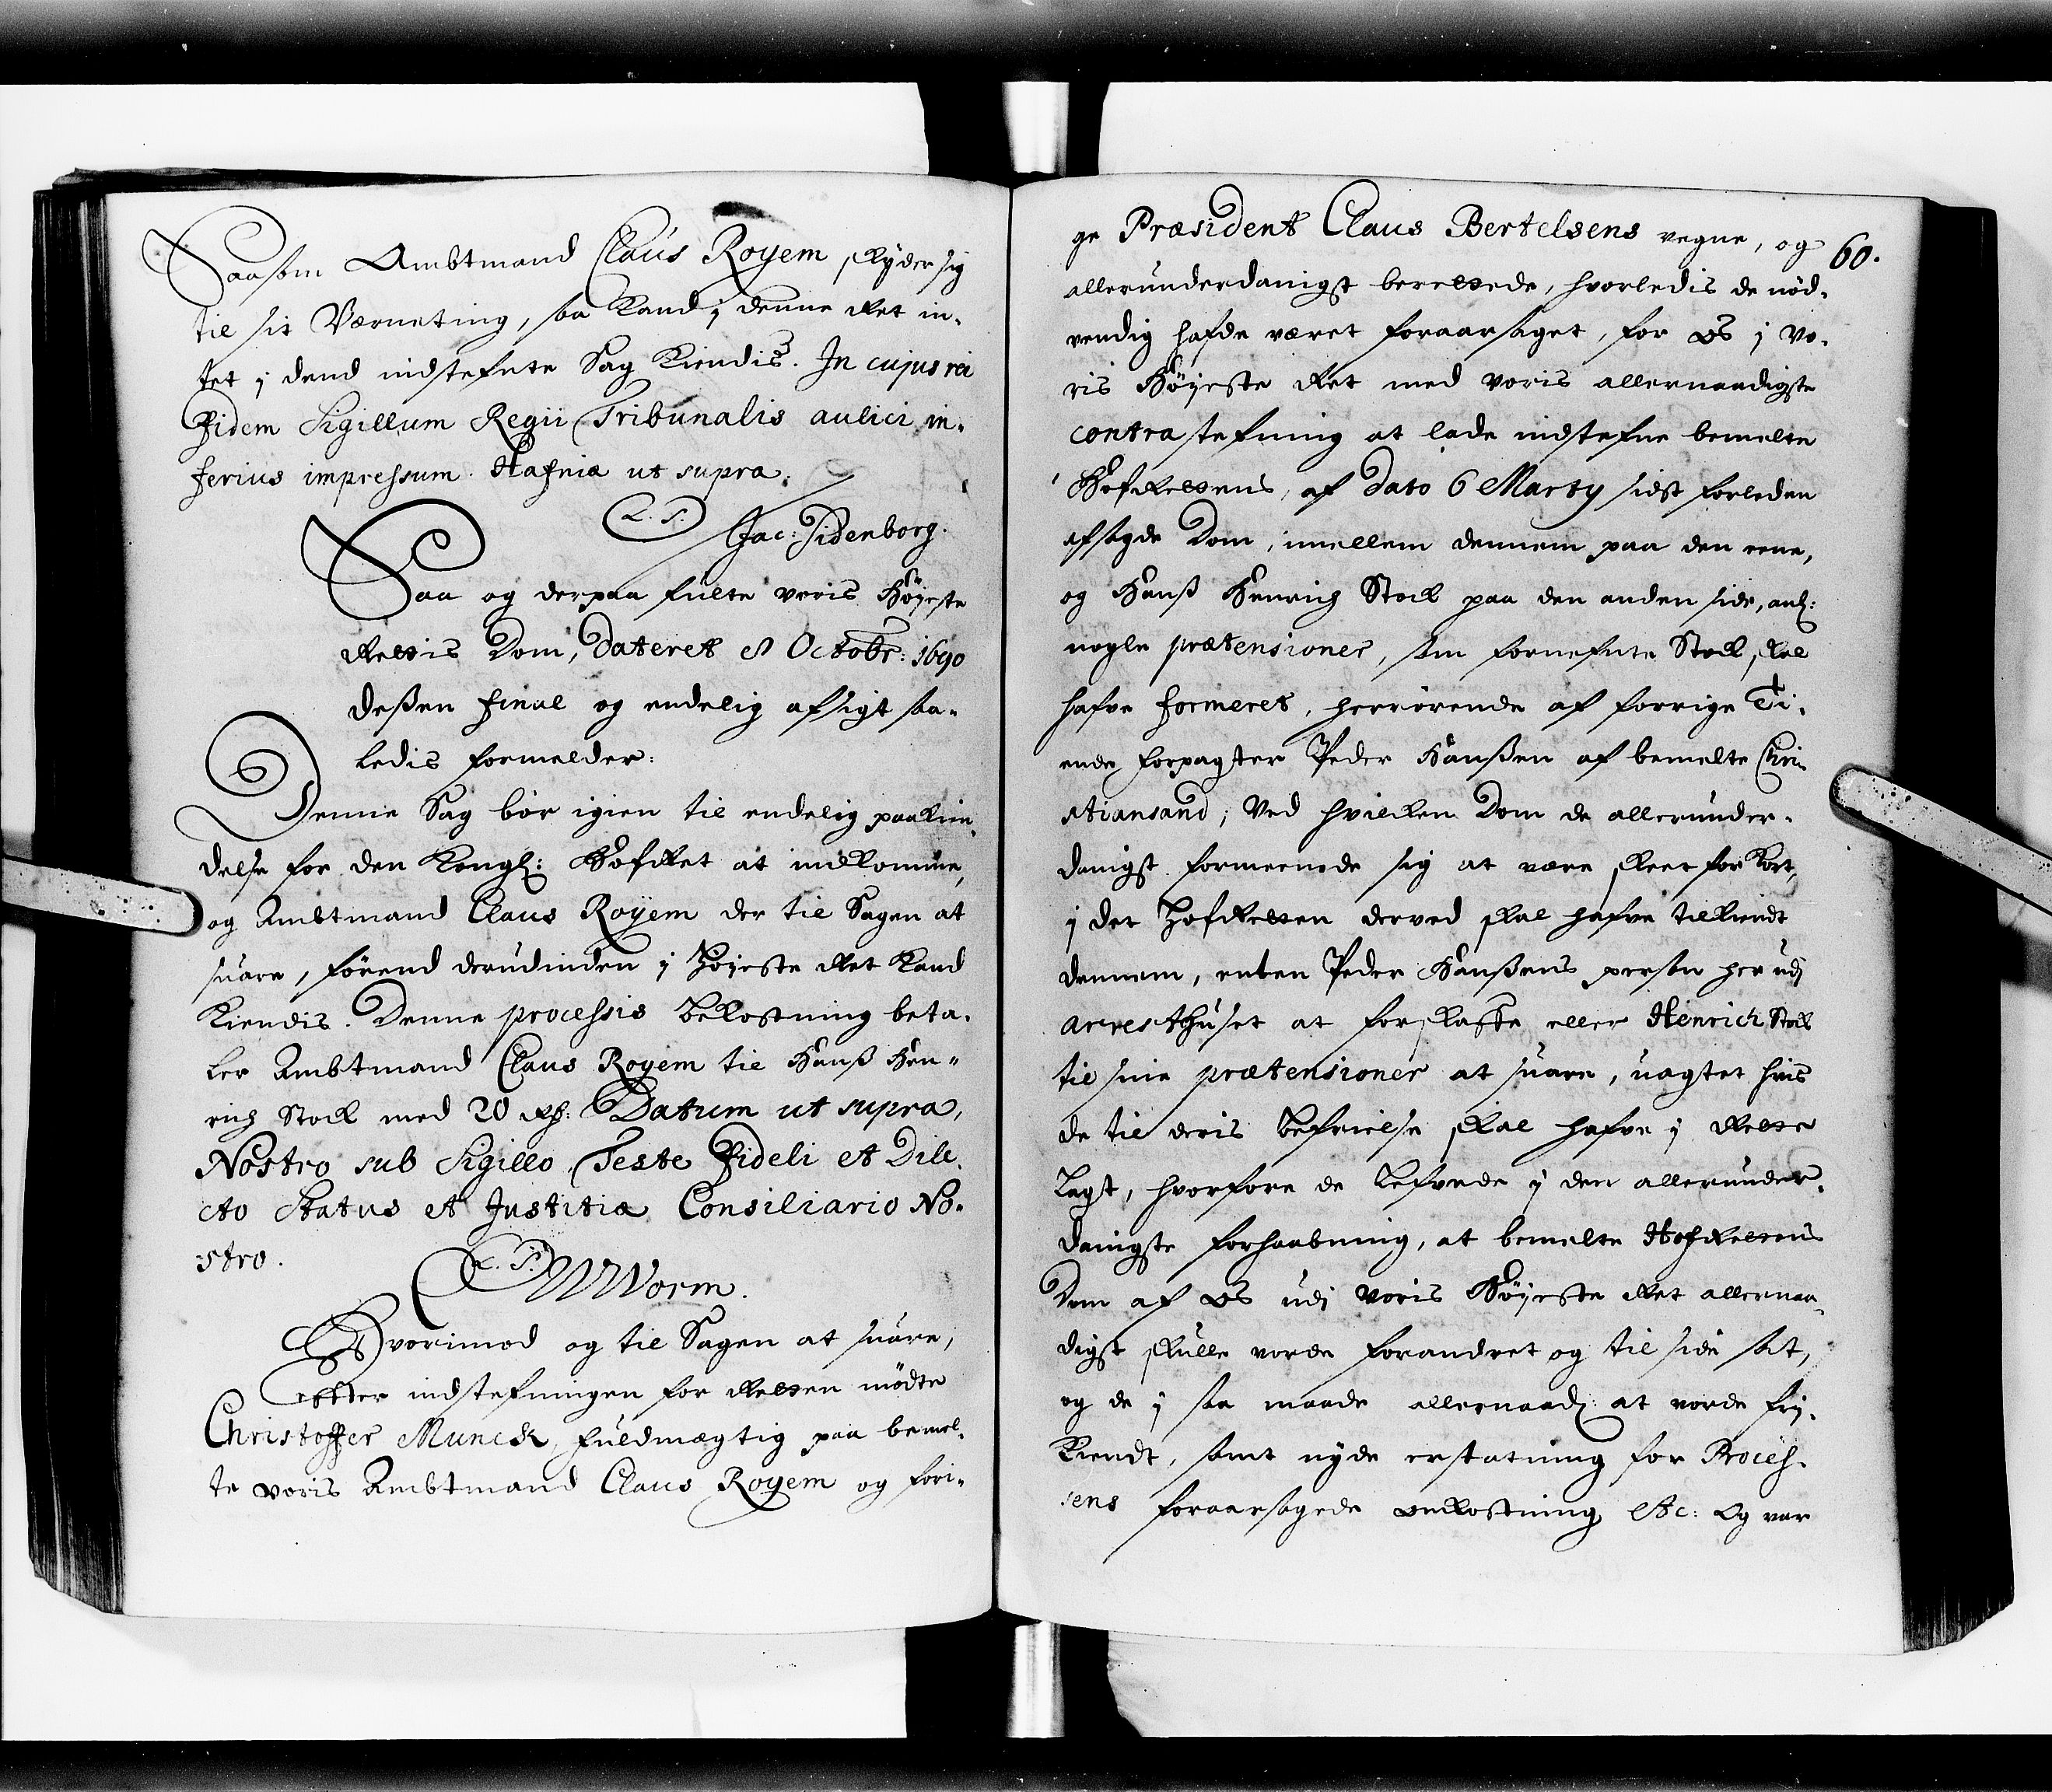 Saasom Ambtmand Claus Royem skyder sig
til sit Værneting, saa kand j denne Ret in-
tet j dend indstefnte Sag kiendis. In cujus rei
Fidem Sigillum Regii Tribunalis aulici in-
ferius impressum. Hafniæ ut supra.
L. S. Jac: Sidenborg.
Saa og derpaa fulte voris Höyeste
Rettis Dom, Dateret d 8 Octobr: 1690
deßen final og endelig afsigt saa-
ledis formelder:
Denne Sag bör igien til endelig paakien-
delse for den Kongl: HofRet at indkomme,
og Ambtmand Claus Royem der til Sagen at
suare, förend derudinden j Höyeste Ret kand
kiendis. Denne processis bekostning beta-
ler Ambtmand Claus Royem til Hanß Hen-
rich Stock med 20 Rd: Datum ut supra,
Nostro sub Sigillo, Teste Fideli et Dile-
cto Status et Justitiæ Consiliario No-
stro.
L. S. W Worm.
Hvorimod og til Sagen at suare,
efter indstefningen for Retten mödte
Christoffer Munck, fuldmægtig paa bemel-
te voris Ambtmand Claus Royem og fori-
ge Præsident Claus Bertelsens vegne, og
60.
allerunderdanigst berettede, hvorledis de nöd-
vendig hafde været foraarsaget, for os j vo-
ris Höyeste Ret med voris allernaadigste
contrastefning at lade indstefne bemelte
HofRettens, af dato 6 Marty sidst forleden
afsagde Dom, imellem dennem paa den eene,
og Hanß Henrich Stock paa den anden side, anl:
nogle prætensioner, som fornefnte Stock skal
hafve formeret, herrörende af forrige Ti-
ende forpagter Peder Hanßen af bemelte Chri-
stiansand; Ved hvilken Dom de allerunder-
danigst formeenede sig at være skeet for kort,
j det HofRetten derved skal hafve tilkiendt
dennem, enten Peder Hanßens person her udj
arresthuset at forskaffe eller Henrich Stock
til sine prætensioner at suare, uagtet hvis
de til deris befrielse skal hafve j Rette
lagt, hvorfore de lefvede j den allerunder-
danigste forhaabning, at bemelte HofRettens
Dom af os udj voris Höyeste Ret allernaa-
digst skulle vorde forandret og til side sat,
og de j saa maade allernaad: at vorde fri-
kiendt, samt nyde erstatning for Process-
ens foraarsagede omkostning etc: Og var